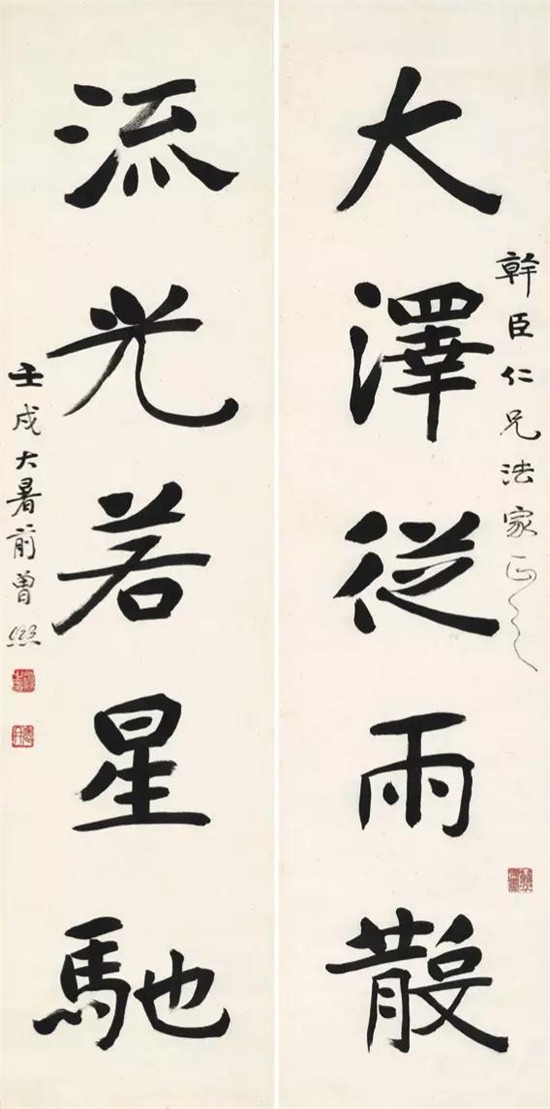 幹臣仁兄法家正之
大澤從雨散
流光若星馳
壬戌大暑前曾熙